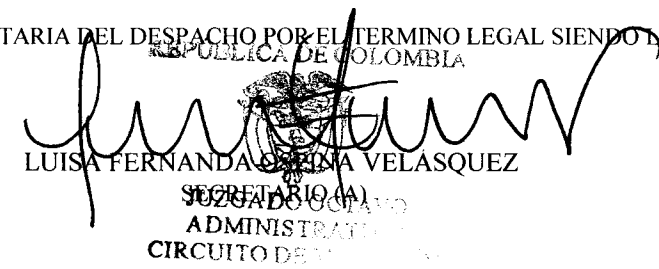 TARIA DEL DESPACHO POR EL TERMINO LEGAL SIENDO
REPÚBLICA DE COLOMBIA
LUISA FERNANDA OSPINA VELÁSQUEZ
SECRETARIO (A)
JUZGADO OCTAVO
ADMINISTRATI
CIRCUITO DE